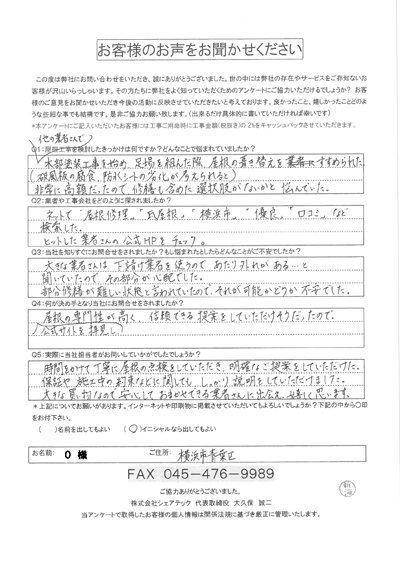 お客様のお声をお聞かせください
この度は弊社にお問い合わせをいただき、誠にありがとうございました。世の中には弊社の存在やサービスをご存知ないお
客様が沢山いらっしゃいます。その方たちに弊社をよく知っていただくためのアンケートにご協力いただけるでしょうか？お客
様のご意見をお聞かせいただき今後の活動に反映させていただきたいと考えております。良かったこと、嬉しかったことどのよ
うな些細な事でも結構です。是非ご協力お願い致します。（出来るだけ具体的に書いていただければ幸いです）
*本アンケートにご記入いただいたお客様には工事ご用命時に工事金額（税抜き）の2%をキャッシュバックさせていただきます。
他の業者さんで
Q1：屋根工事を検討したきっかけは何ですか？どんなことで悩まれていましたか？
木部塗装工事を始め、足場を組んだ際、屋根の葺き替えをすすめられた
（破風板の腐食、防水シートの劣化が考えられると）
非常に高額だったので修繕も含めた選択肢がないかと悩んでいた。
Q2：業者や工事会社をどのように探されましたか？
ネットで「屋根修理」「瓦屋根」「横浜市」「優良」「口コミ」など
検索した。
ヒットした業者さんの公式HPをチェック。
Q3：当社を知りすぐにお問合せをされましたか？もし悩まれたとしたらどんなことがご不安でしたか？
大きな業者さんは下請け業者を使うのであたり外れがある…と
聞いていたので、その部分が心配でした。
部分修繕が難しい状態と言われていたので、それが可能かどうか不安でした。
Q4：何が決め手となり当社にお問合せをされましたか？
屋根の専門性が高く、信頼できる提案をしていただけそうだったので。
公式サイトを拝見し
Q5：実際に当社担当者がお伺いしていかがでしたでしょうか？
時間をかけて丁寧に屋根の点検をしていただき、明確なご提案をしていただけた。
保証や施工中の約束などに関しても、しっかり説明をしていただけました。
大きな買い物なので安心しておまかせできる業者さんに出会え、と思います。
*上記についてお願いがあります。インターネットや印刷物に掲載させていただいてもよろしいでしょうか？下記の中から〇印
をお付け下さい。
（　）名前を出してもよい　（〇）イニシャルなら出してもよい
お名前：　O 様　ご住所：　横浜市青葉区
FAX 045-476-9989
ご協力ありがとうございました。
株式会社シェアテック 代表取締役 大久保 誠二
当アンケートで取得したお客様の個人情報は関係法規に基づき厳正に管理いたします。